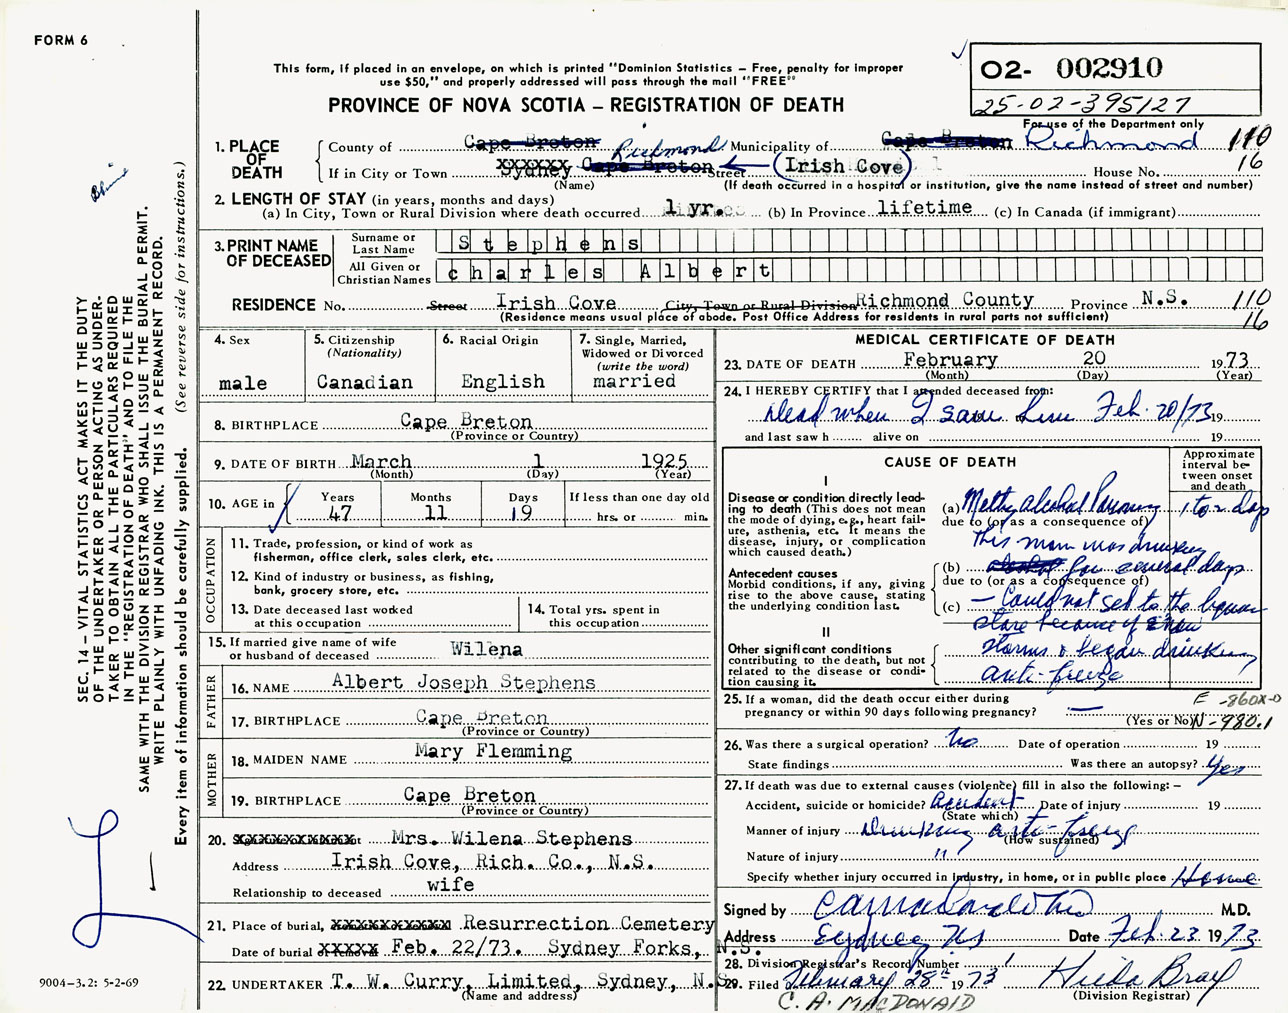 FORM 6
This form, if placed in an envelope, on which is printed "Dominion Statistics – Free, penalty for improper
use $50," and properly addressed will pass through the mail "FREE"
PROVINCE OF NOVA SCOTIA – REGISTRATION OF DEATH
02- 002910
25-02-395127
For use of the Department only
1. PLACE OF DEATH
County of Cape Breton Richmond Municipality of Cape Breton Richmond 110
If in City or Town XXXXXX Sydney Cape Breton Street (Irish Cove) House No. 16
(Name) (If death occurred in a hospital or institution, give the name instead of street and number)
2. LENGTH OF STAY (in years, months and days)
(a) In City, Town or Rural Division where death occurred 1 yr. (b) In Province lifetime (c) In Canada (if immigrant)
3. PRINT NAME OF DECEASED
Surname or Last Name Stephens
All Given or Christian Names charles Albert
RESIDENCE No. Street Irish Cove City, Town or Rural Division Richmond County Province N.S. 110
(Residence means usual place of abode. Post Office Address for residents in rural parts not sufficient) 16
4. Sex
male
5. Citizenship
(Nationality)
Canadian
6. Racial Origin
English
7. Single, Married,
Widowed or Divorced
(write the word)
married
8. BIRTHPLACE Cape Breton
(Province or Country)
9. DATE OF BIRTH March 1 1925
(Month) (Day) (Year)
10. AGE in Years Months Days If less than one day old
47 11 19 hrs. or min.
OCCUPATION
11. Trade, profession, or kind of work as
fisherman, office clerk, sales clerk, etc.
12. Kind of industry or business, as fishing,
bank, grocery store, etc.
13. Date deceased last worked
at this occupation
14. Total yrs. spent in
this occupation
15. If married give name of wife
or husband of deceased Wilena
FATHER
16. NAME Albert Joseph Stephens
17. BIRTHPLACE Cape Breton
(Province or Country)
MOTHER
18. MAIDEN NAME Mary Flemming
19. BIRTHPLACE Cape Breton
(Province or Country)
20. Mrs. Wilena Stephens
Address Irish Cove, Rich. Co., N.S.
Relationship to deceased wife
21. Place of burial, Resurrection Cemetery
Date of burial or removal XXXXX Feb. 22/73. Sydney Forks, N.S.
22. UNDERTAKER T. W. Curry, Limited, Sydney, N.S.
(Name and address)
MEDICAL CERTIFICATE OF DEATH
23. DATE OF DEATH February 20 1973
(Month) (Day) (Year)
24. I HEREBY CERTIFY that I attended deceased from:
Dead when I saw him Feb. 20/73 19
and last saw h alive on 19
CAUSE OF DEATH
Approximate
interval be-
tween onset
and death
I
Disease or condition directly lead-
ing to death (This does not mean
the mode of dying, e.g., heart fail-
ure, asthenia, etc. It means the
disease, injury, or complication
which caused death.)
(a) Methy alcohol Poisoning 1 to 2 days
due to (or as a consequence of)
This man was drinking
Antecedent causes
Morbid conditions, if any, giving
rise to the above cause, stating
the underlying condition last.
(b) alcohol for several days
due to (or as a consequence of)
(c) – Could not get to the liquor
store because of snow
II
Other significant conditions
contributing to the death, but not
related to the disease or condi-
tion causing it.
storms & began drinking
anti-freeze
25. If a woman, did the death occur either during
pregnancy or within 90 days following pregnancy? —
(Yes or No)
E -860X-0
N -980.1
26. Was there a surgical operation? No Date of operation 19
State findings Was there an autopsy? Yes
27. If death was due to external causes (violence) fill in also the following: –
Accident, suicide or homicide? Accident Date of injury 19
(State which)
Manner of injury Drinking anti-freeze
(How sustained)
Nature of injury "
Specify whether injury occurred in industry, in home, or in public place Home
Signed by M.D.
Address Sydney NS Date Feb. 23 1973
28. Division Registrar's Record Number 1
29. Filed February 28th 1973 Hilda Bray
(Division Registrar)
C. A. MACDONAID
SEC. 14 – VITAL STATISTICS ACT MAKES IT THE DUTY
OF THE UNDERTAKER OR PERSON ACTING AS UNDER-
TAKER TO OBTAIN ALL THE PARTICULARS REQUIRED
IN THE "REGISTRATION OF DEATH" AND TO FILE THE
SAME WITH THE DIVISION REGISTRAR WHO SHALL ISSUE THE BURIAL PERMIT.
WRITE PLAINLY WITH UNFADING INK. THIS IS A PERMANENT RECORD.
Every item of information should be carefully supplied. (See reverse side for instructions.)
9004-3.2: 5-2-69